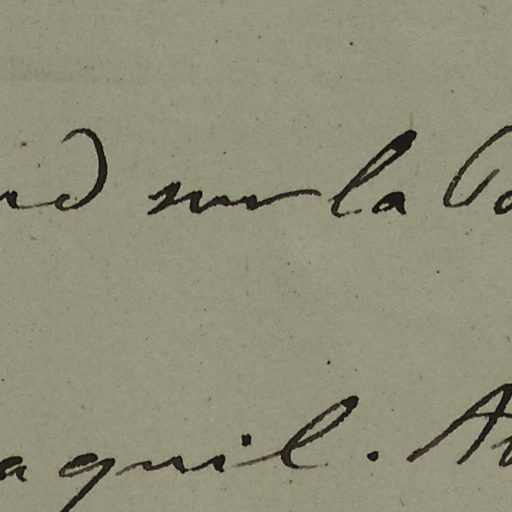 sur la
aquil. A